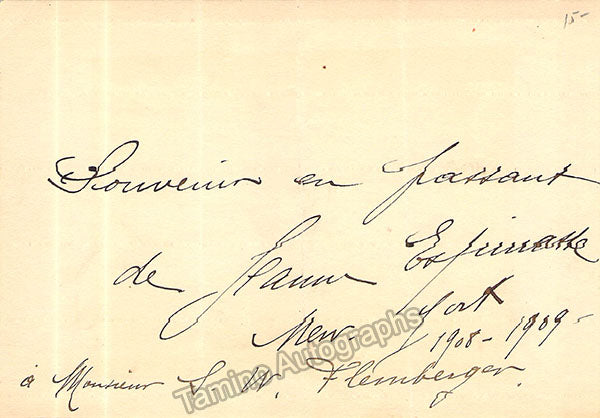 15-
Souvenir en passant
de Jeanne Espinasse
New York
1908-1909-
à Monsieur S. W. Flemberger.
Tamino Autographs